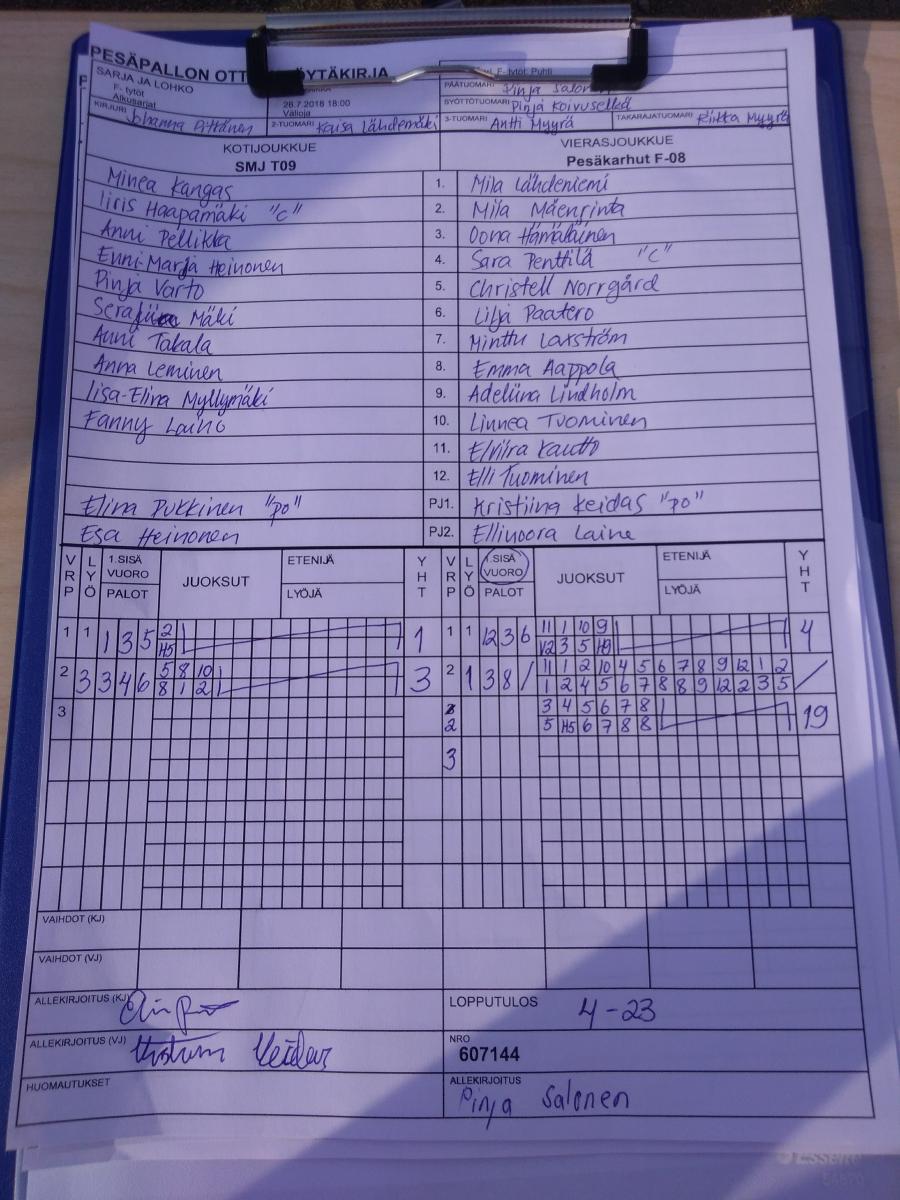 PESÄPALLON OTT ÖYTÄKIRJA
SARJA JA LOHKO
F- tytöt
Alkusarjat
26.7.2018 18:00
F- tytöt, Puhti
PÄÄTUOMARI Pinja Salonen
SYÖTTÖTUOMARI Pinja Koivuselkä
KIRJURI Johanna
2-TUOMARI Kaisa Lähdemäki
3-TUOMARI Antti Myyrä
TAKARAJATUOMARI Riikka Myyrä
KOTIJOUKKUE
SMJ T09
VIERASJOUKKUE
Pesäkarhut F-08
Minea Kangas 1. Mila Lähdeniemi
Iiris Haapamäki "C" 2. Mila Mäenrinta
Anni Pellikka 3. Oona Hämäläinen
Enni-Marja Heinonen 4. Sara Penttilä "C"
Pinja Varto 5. Christell Norrgård
Mäki 6. Lilja Paatero
Anni Takala 7. Minttu Laxström
Anna Leminen 8. Emma Aappola
Iisa-Elina Myllymäki 9. Adeliina Lindholm
Fanny Laiho 10. Linnea Tuominen
11. Elviira Kautto
12. Elli Tuominen
Elina Pukkinen "po" PJ1. Kristiina Keidas "po"
Esa Heinonen PJ2. Ellinoora Laine
VRP LYÖ 1.SISÄ VUORO PALOT JUOKSUT ETENIJÄ LYÖJÄ YHT VRP LYÖ 1.SISÄ VUORO PALOT JUOKSUT ETENIJÄ LYÖJÄ YHT
1 1 1 3 5 2 1 1 1 12 3 6 11 1 10 9 4
H5 12 3 5 H9
2 3 3 4 6 5 8 10 3 2 1 3 8 / 11 1 2 10 4 5 6 7 8 9 12 1 2
8 1 2 1 2 4 5 6 7 8 8 9 12 2 3 5
3 2 3 4 5 6 7 8 19
5 H5 6 7 8 8
3
VAIHDOT (KJ)
VAIHDOT (VJ)
ALLEKIRJOITUS (KJ)
LOPPUTULOS 4-23
ALLEKIRJOITUS (VJ) Keidas
NRO
607144
HUOMAUTUKSET
ALLEKIRJOITUS
Pinja Salonen